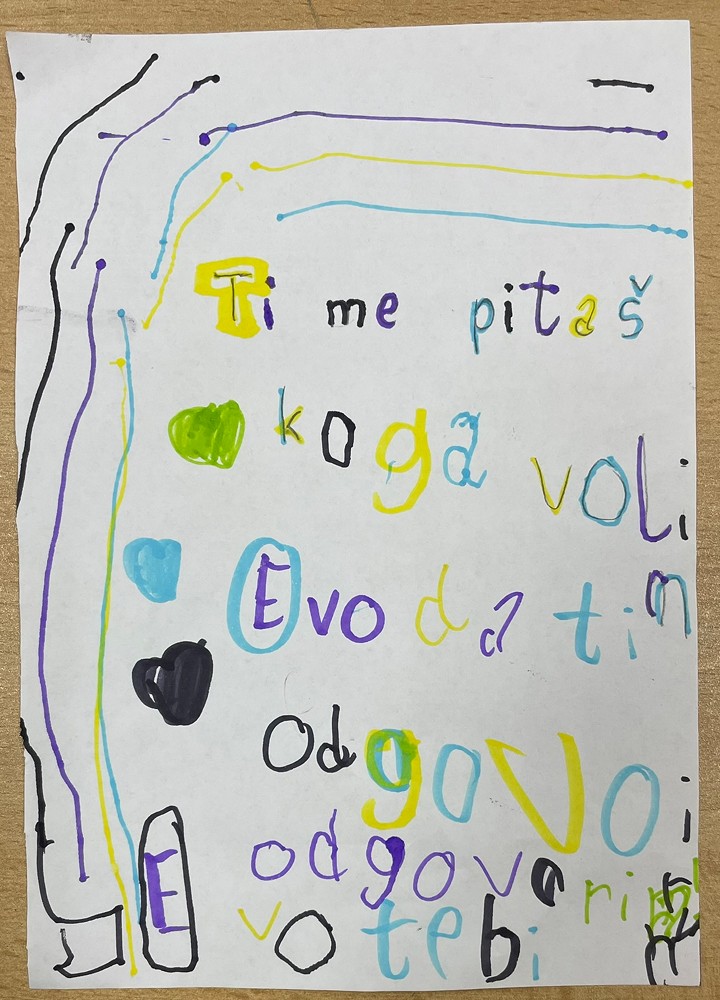 Ti me pitaš
koga volim
Evo da ti
Odgovoi
odgovarim
Evo tebi